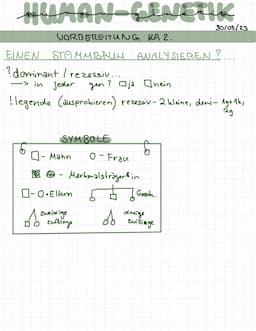 HUMAN-GENETIK
30/03/23
VORBEREITUNG KA 2.
EINEN STAMMBAUM ANALYSIEREN?...
? dominant / rezessiv...
→ in jeder gen? ja nein
! legende (ausprobieren) rezessiv - 2 kleine, domi -
SYMBOLE
- Mann - Frau
- Merkmalsträger*in
- Eltern Gesch.
zweieiige eineiige
Zwillinge Zwillinge